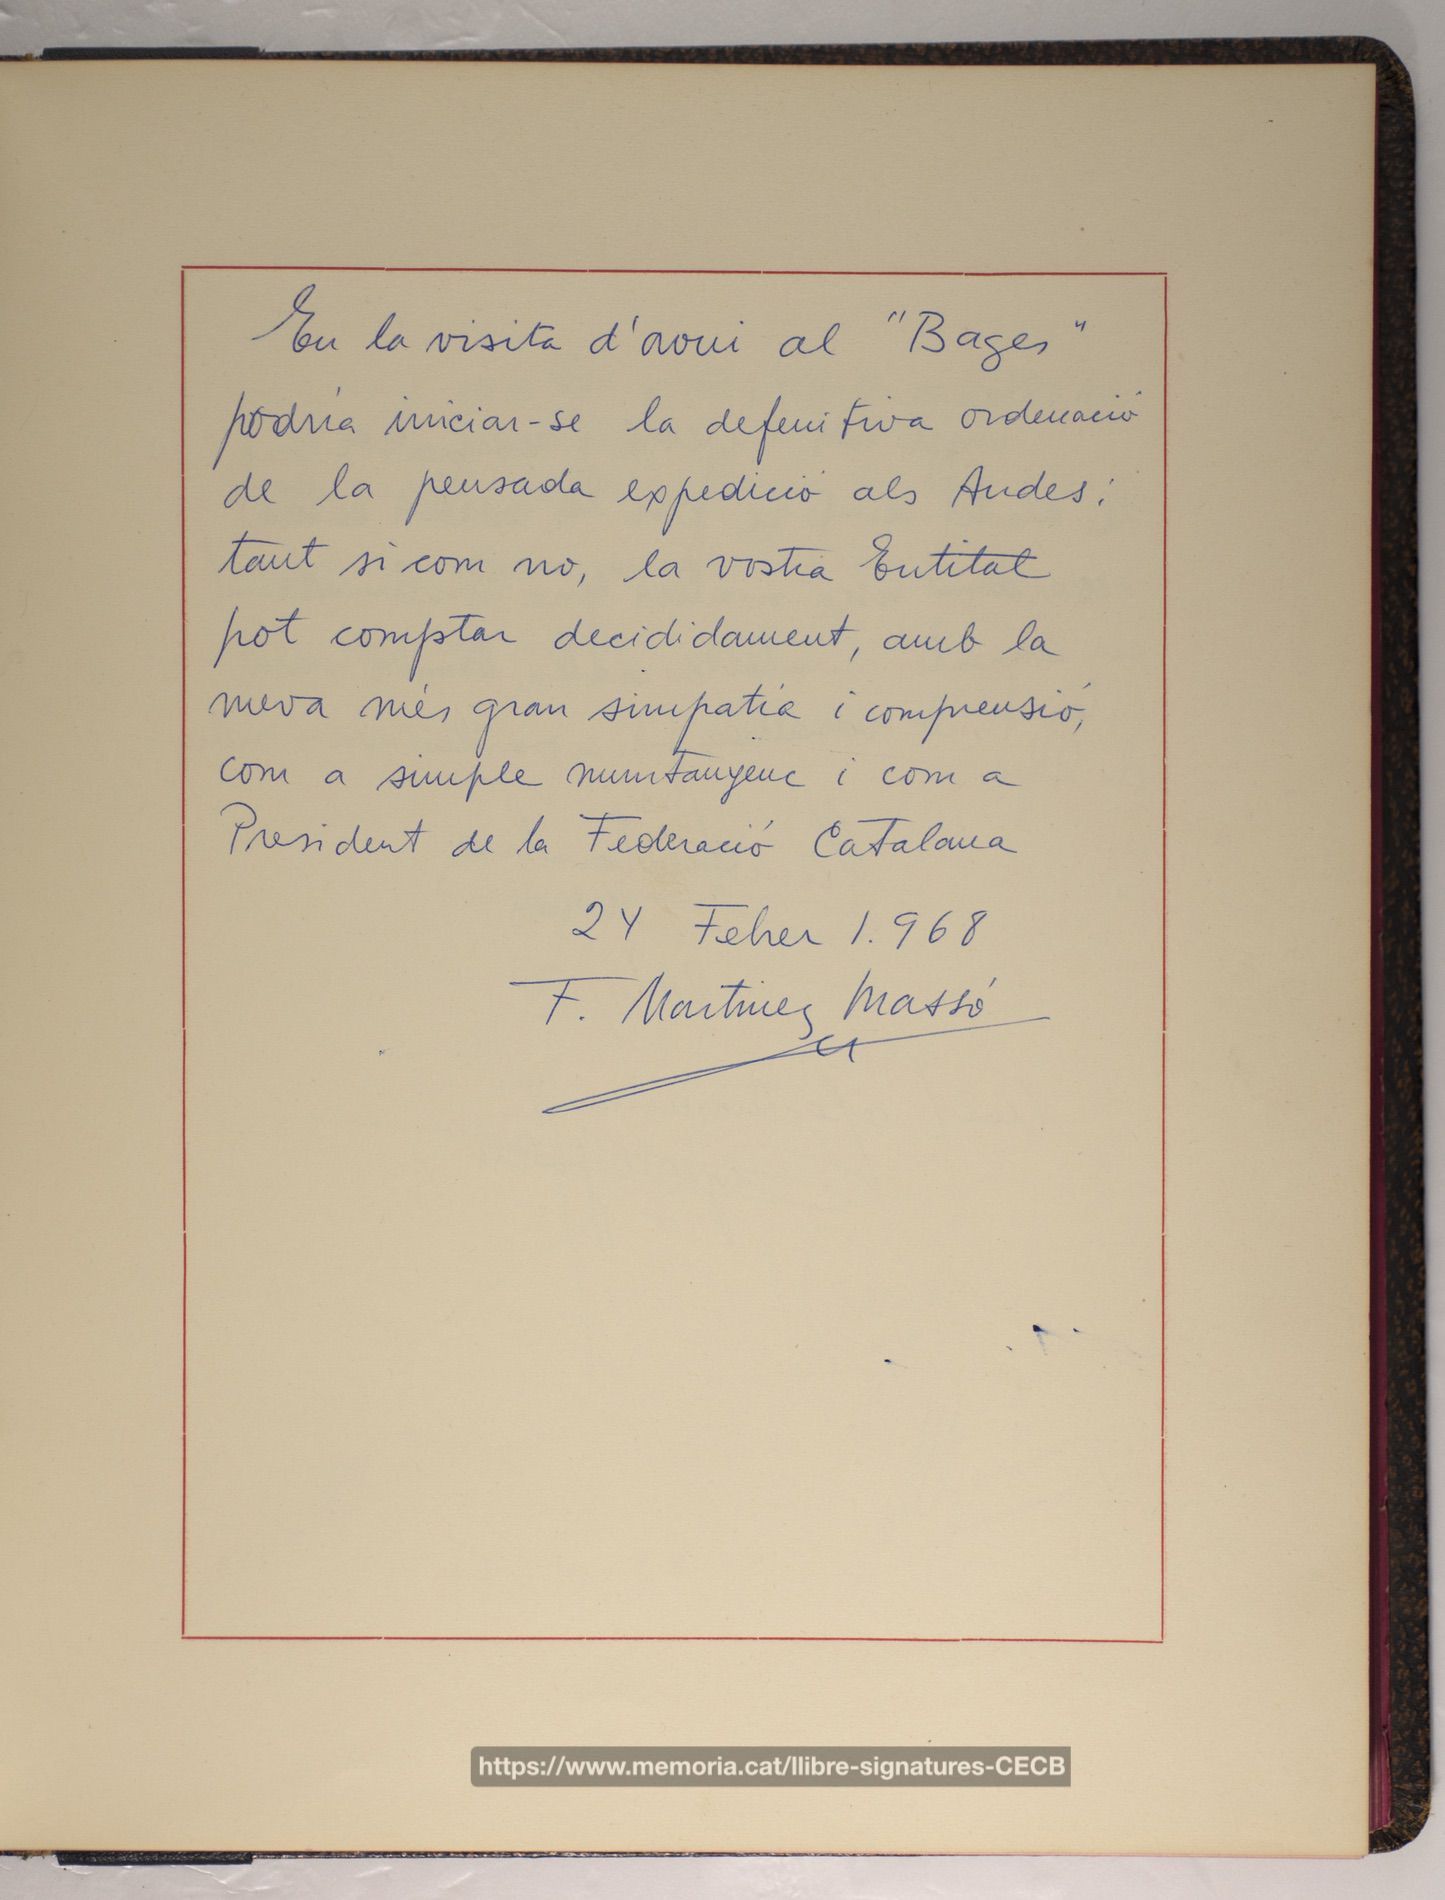 En la visita d'avui al "Bages"
podría iniciar-se la defenitiva ordenació
de la pensada expedició als Andes;
tant si com no, la vostra Entitat
pot comptar decididament, amb la
meva més gran simpatía i comprensió,
com a simple muntanyenc i com a
President de la Federació Catalana
24 Febrer 1.968
F. Martinez Massó
https://www.memoria.cat/llibre-signatures-CECB